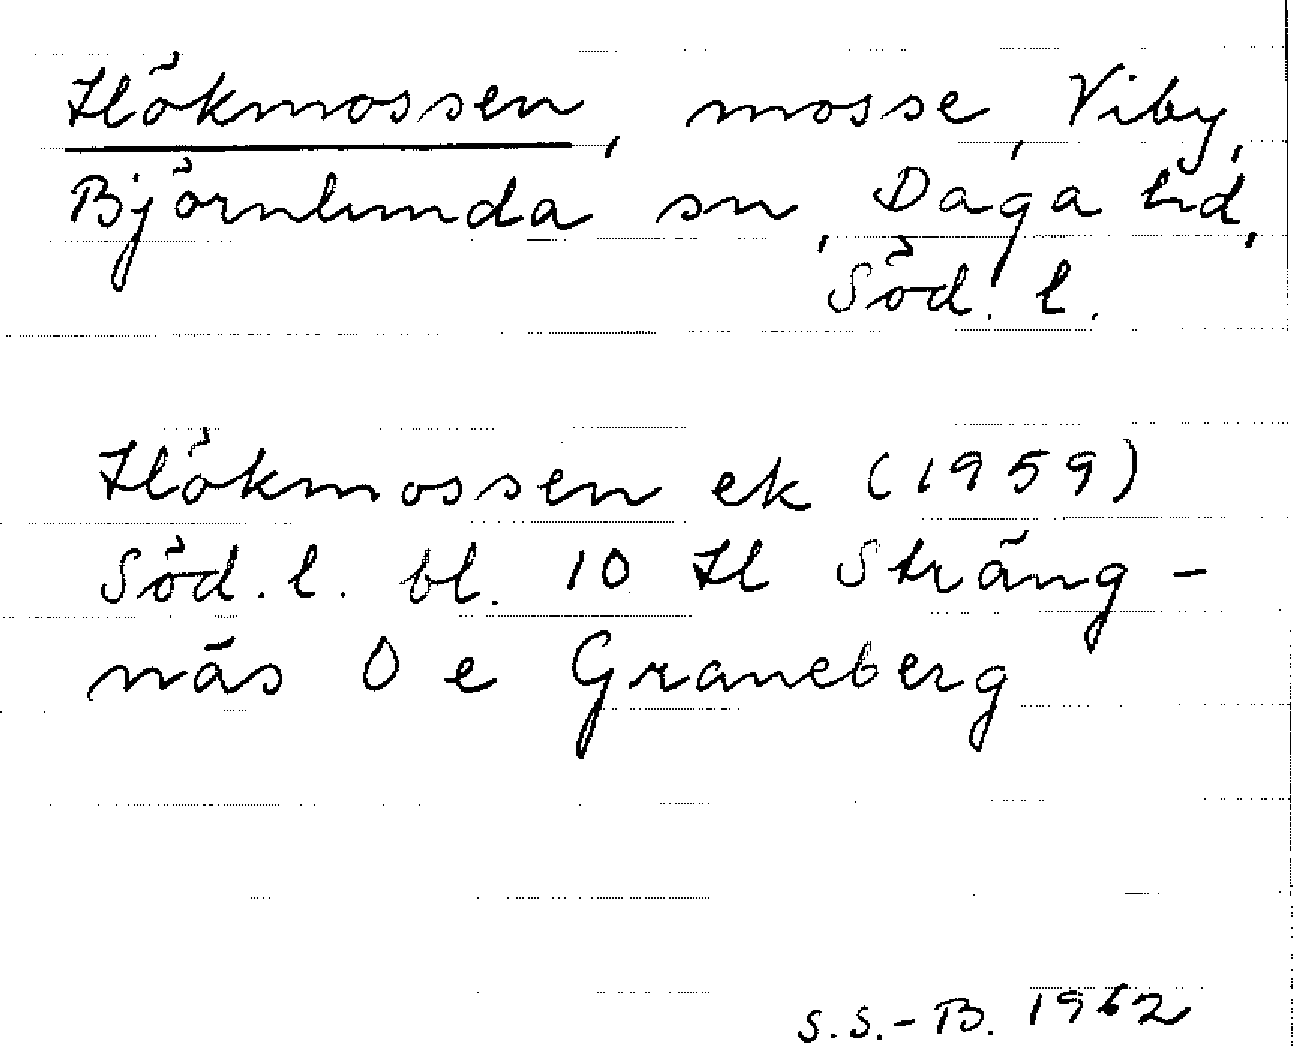 Hökmossen, mosse, Viby,
Björnlunda sn, Daga hd,
Söd. l.
Hökmossen ek (1959)
Söd. l. bl. 10 H Sträng-
näs O e Graneberg
S.S.-B. 1962